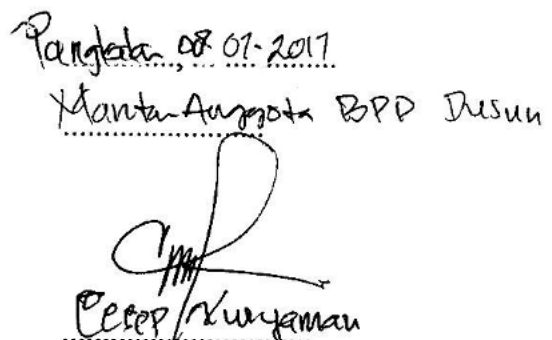 Pangkalan, 08-07-2017
Mantan Anggota BPD Dusun
Cecep Kuryaman